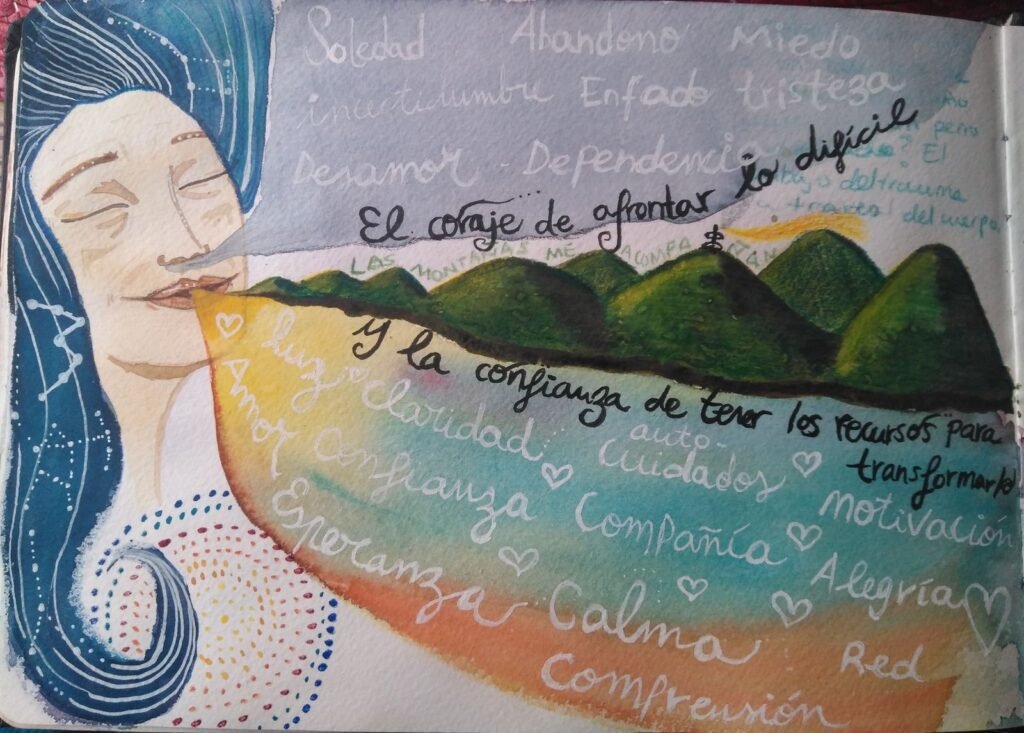 Soledad Abandono Miedo
incertidumbre Enfado tristeza
Desamor - Dependencia
El
del trauma
a través del cuerpo
El coraje de afrontar lo difícil
LAS MONTAÑAS ME ACOMPAÑAN
y la confianza de tener los recursos para
transformarlo
Luz claridad auto-cuidados motivación
Amor Confianza Compañía Alegría
Esperanza Calma Red
Comprensión